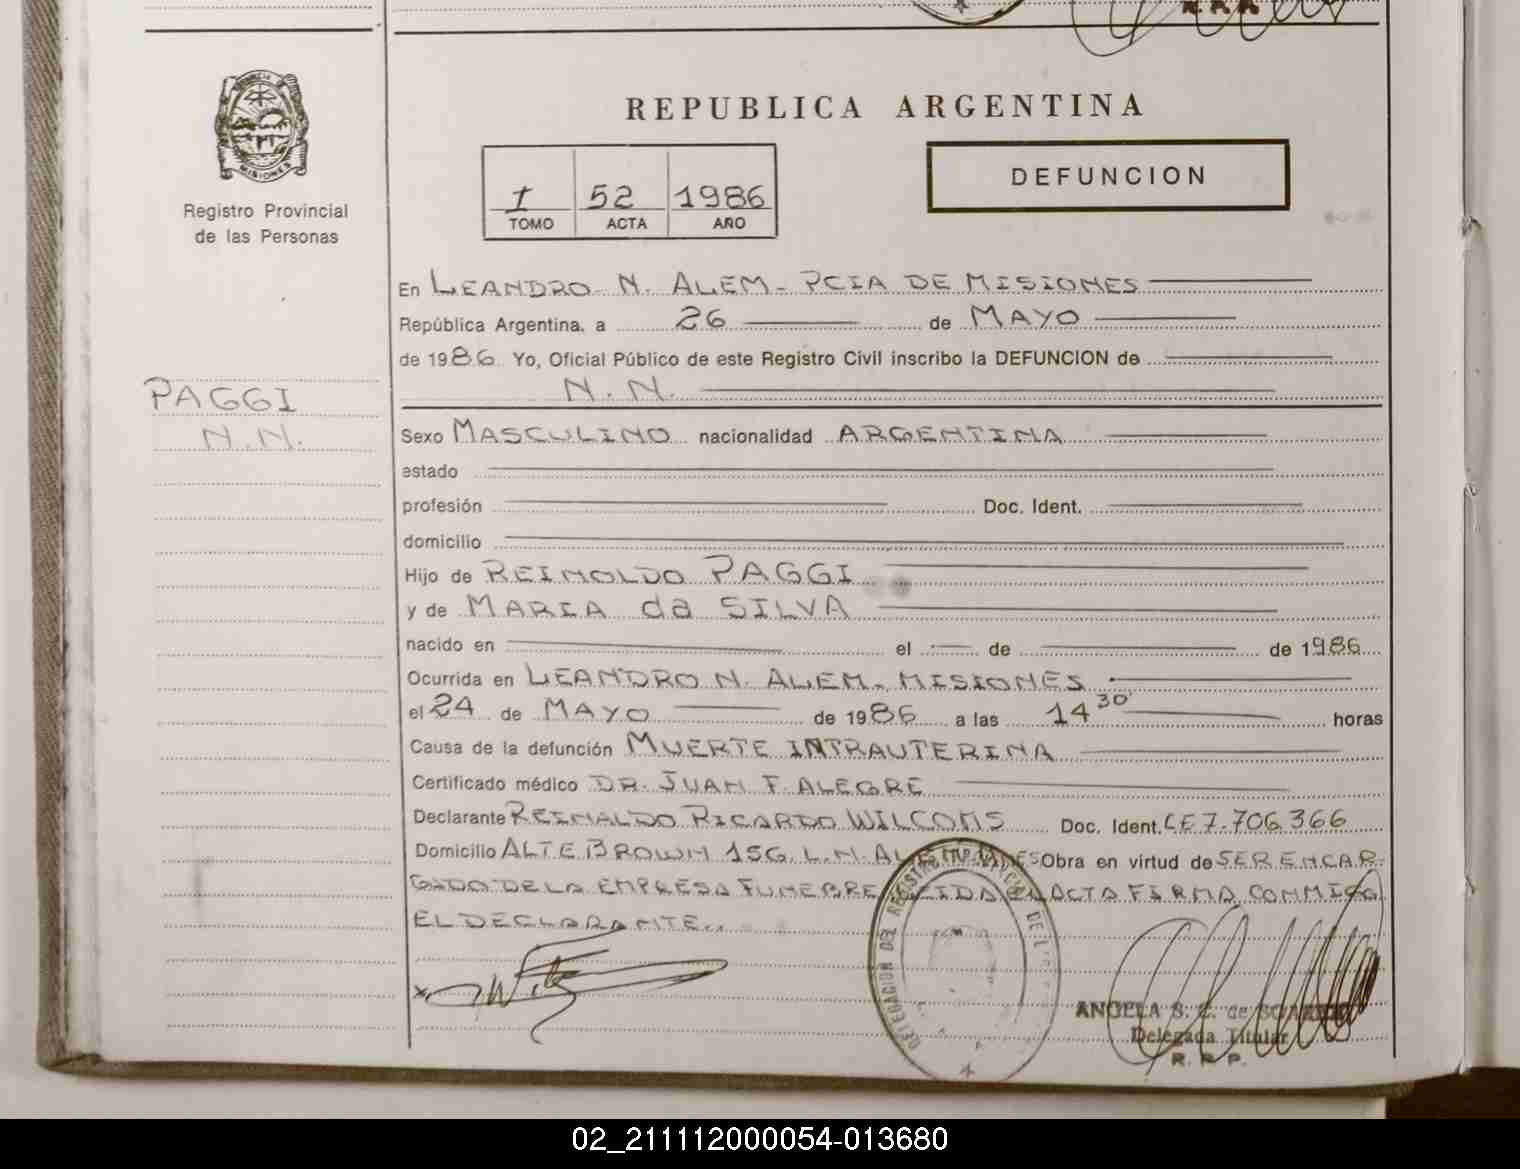 MISIONES
Registro Provincial
de las Personas
PAGGI
N.N.
REPUBLICA ARGENTINA
I 52 1986
TOMO ACTA AÑO
DEFUNCION
En LEANDRO N. ALEM - PCIA DE MISIONES
República Argentina, a 26 de MAYO
de 1986. Yo, Oficial Público de este Registro Civil inscribo la DEFUNCION de
N.N.
Sexo MASCULINO nacionalidad ARGENTINA
estado
profesión Doc. Ident.
domicilio
Hijo de REINOLDO PAGGI
y de MARIA da SILVA
nacido en el de de 1986
Ocurrida en LEANDRO N. ALEM - MISIONES
el 24 de MAYO de 1986 a las 14 30' horas
Causa de la defunción MUERTE INTRAUTERINA
Certificado médico DR. JUAN F. ALEGRE
Declarante REINALDO RICARDO WILCOMS Doc. Ident. CE 7.706.366
Domicilio ALTE BROWN 156 L.N. ALEM Obra en virtud de SER ENCAR-
GADO DE LA EMPRESA FUNEBRE LEIDA EL ACTA FIRMA CONMIGO
EL DECLARANTE..
DELEGACION DEL REGISTRO PROVINCIAL DE
ANGELA S. C. de
Delegada Titular
R. P. P.
02_211112000054-013680